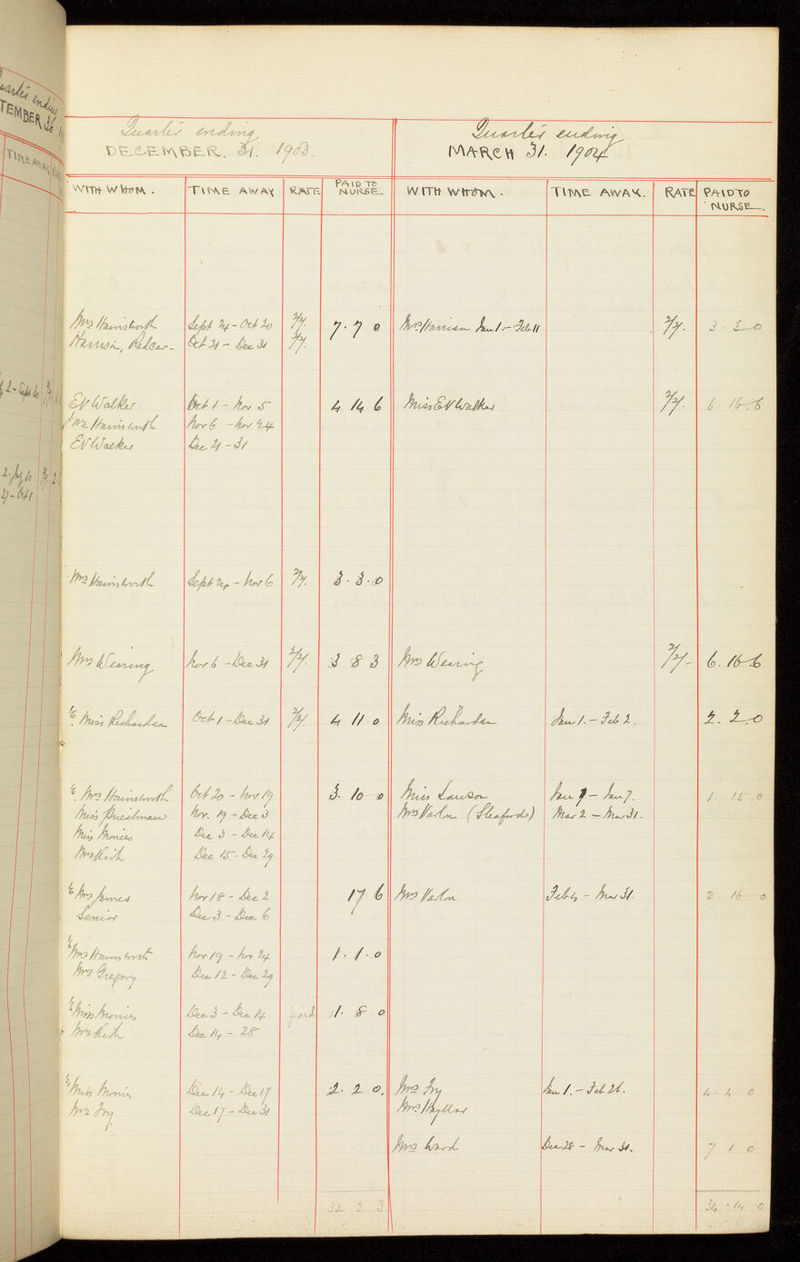 Quarter ending
TEMBER 30
TIME AWAY
Quarter ending
DECEMBER. 31. 1903.
WITH WHOM. TIME AWAY RATE PAID TO NURSE.
Mrs Hainsworth Sept 24 - Oct 20 7 . 7 0
Harrison, Redcar. Oct 21 - Dec 31
EV Walker Oct 1 - Nov 5 4 14 6
Mrs Hainsworth Nov 6 - Nov 24
EV Walker Dec 21 - 31
Mrs Hainsworth Sept 24 - Nov 6 3 . 3 . 0
Mrs Wearing Nov 6 - Dec 31 3 8 3
Miss Richardson Oct 1 - Dec 31 4 11 0
Mrs Hainsworth Oct 20 - Nov 19 3 . 10 0
Miss Priestman Nov. 19 - Dec 3
Miss Monies Dec 3 - Dec 14
Mrs Kish Dec 15 - Dec 29
Mrs James Nov 18 - Dec 2 17 6
Senior Dec 3 - Dec 6
Mrs Hainsworth Nov 19 - Nov 24 1 . 1 . 0
Mrs Gregory Dec 12 - Dec 29
Miss Monies Dec 3 - Dec 14 paid 1 . 8 0
Mrs Kish Dec 14 - 28
Miss Monies Dec 14 - Dec 17 2 . 2 0.
Mrs Fry Dec 17 - Dec 31
32 2 3
Quarter ending
MARCH 31. 1904
WITH WHOM. TIME AWAY. RATE PAID TO NURSE.
Mrs Harrison Jan 1 - Feb 11 3 . 3 - 0
Miss EV Walker 6 . 16 . 6
Mrs Wearing 6 . 16 - 6
Miss Richardson Jan 1. - Feb 2. 2 . 2 . 0
Miss Lawson Jan 1 - Jan 7. 1 15 0
Mrs Varlow (Sleaford) Mar 2 - Mar 31.
Mrs Varlow Feb 4 - Mar 31. 2 16 0
Mrs Fry Jan 1. - Feb 26. 4 . 4 0
Mrs Hyllar
Mrs Ward Dec 28 - Mar 31. 7 1 0
34 . 14 0